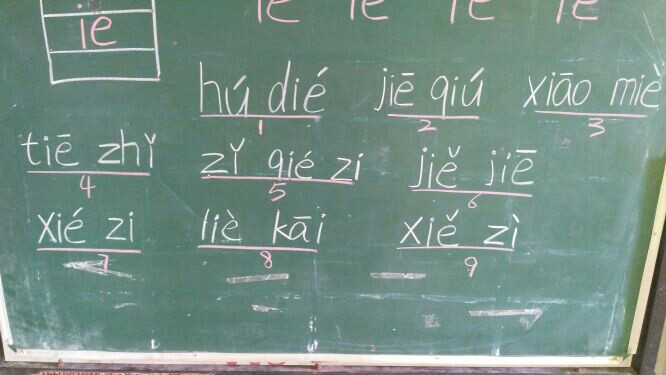 ie ie ie ie ie
hú dié jiē qiú xiāo miè
1 2 3
tiē zhǐ zǐ qié zi jiě jiē
4 5 6
xié zi liè kāi xiě zì
7 8 9